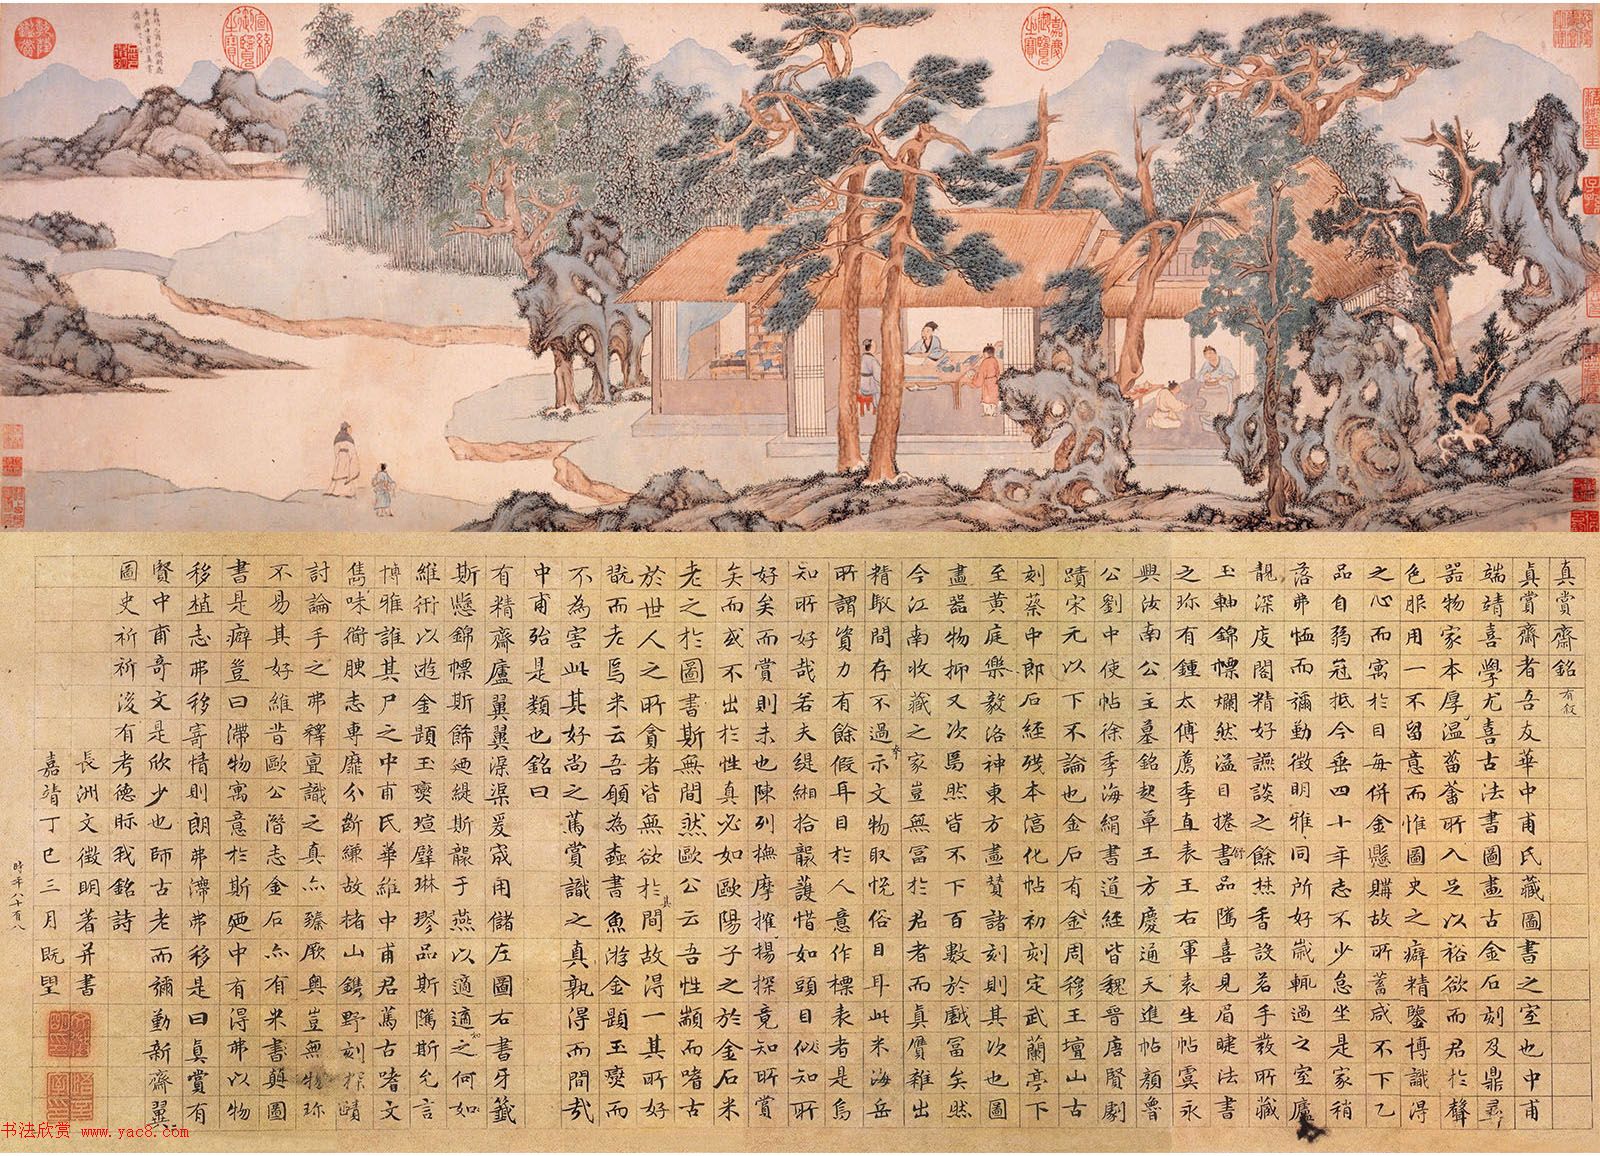 真賞齋銘有叙
真賞齋者吾友華中甫氏藏圖書之室也中甫
端靖喜學尤喜古法書圖畫古金石刻及鼎彞
器物家本厚溫菑畬所入足以裕欲而君於聲
色服用一不留意而惟圖史之癖精鑒博識得
之心而寓於目每併金懸購故所蓄咸不下乙
品自弱冠抵今垂四十年志不少怠坐是家稍
落弗恤而彌勤徵明雅同所好歲輒過之室廬
靚深庋閣精好讌談之餘焚香設茗手發所藏
玉軸錦幖爛然溢目捲舒品隲喜見眉睫法書
之珎有鍾太傅薦季直表王右軍袁生帖虞永
興汝南公主墓銘起草王方慶通天進帖顏魯
公劉中使帖徐季海絹書道經皆魏晉唐賢劇
蹟宋元以下不論也金石有周穆王壇山古
刻蔡中郎石經殘本淳化帖初刻定武蘭亭下
至黃庭樂毅洛神東方畫贊諸刻則其次也圖
畫器物抑又次焉然皆不下百數於戲富矣然
今江南收藏之家豈無富於君者而真贋雜出
精駁間存不過夸示文物取悅俗目耳此米海岳
所謂資力有餘假耳目於人意作標表者是烏
知所好哉若夫緹緗拾襲護惜如頭目似知所
好矣而賞則未也陳列撫摩搉揚探竟知所賞
矣而或不出於性真必如歐陽子之於金石米
老之於圖書斯無間然歐公云吾性顓而嗜古
於世人之所貪者皆無欲於其間故得一其所好
翫而老焉米云吾願為蠹書魚游金題玉躞而
不為害此其好尚之篤賞識之真孰得而間哉
中甫殆是類也銘曰
有精齋廬翼翼渠渠爰宬用儲左圖右書牙籤
斯懸錦幖斯飾迺緹斯襲于燕以適適之何如
維衎以遊金題玉躞瑄璧琳璆品斯隲斯允言
博雅誰其尸之中甫氏華維中甫君篤古嗜文
雋味道腴志專靡分斷縑故楮山鐫野刻探賾
討論手之弗釋亶識之真亦臻厥奧豈無物珎
不易其好維昔歐公潛志金石亦有米書顛圖
書是癖豈曰滯物寓意於斯迺中有得弗以物
移植志弗移寄情則朗弗滯弗移是曰真賞有
賢中甫奇文是欣少也師古老而彌勤新齋翼=
圖史祈祈後有考德眎我銘詩
長洲文徵明著并書
嘉靖丁巳三月既望
時年八十有八
宣統御覽之寶
嘉慶御覽之寶
书法欣赏 www.yac8.com